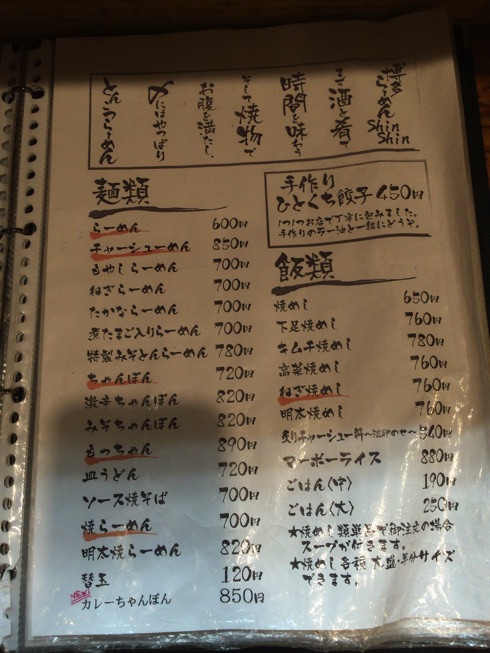 博多らーめん ShinShin
まず酒と肴で
時間を味わう
そして焼物で
お腹を満たし、
〆にはやっぱり
とんこつらーめん
手作り
ひとくち餃子 450円
1つ1つお店で丁寧に包みました。
手作りのラー油と一緒にどうぞ。
麺類
らーめん 600円
チャーシューめん 850円
もやしらーめん 700円
ねぎらーめん 700円
たかならーめん 700円
煮たまご入りらーめん 700円
特製みそとんらーめん 780円
ちゃんぽん 720円
激辛ちゃんぽん 820円
みそちゃんぽん 820円
もっちゃん 890円
皿うどん 720円
ソース焼そば 700円
焼らーめん 700円
明太焼らーめん 820円
替玉 120円
NEW! カレーちゃんぽん 850円
飯類
焼めし 650円
下足焼めし 760円
キムチ焼めし 780円
高菜焼めし 760円
ねぎ焼めし 760円
明太焼めし 760円
炙りチャーシュー丼〜温卵のせ〜 540円
マーボーライス 880円
ごはん〈中〉 190円
ごはん〈大〉 250円
★焼めし類単品で御注文の場合
スープが付きます。
★焼めし各種 大盛・半分サイズ
できます。